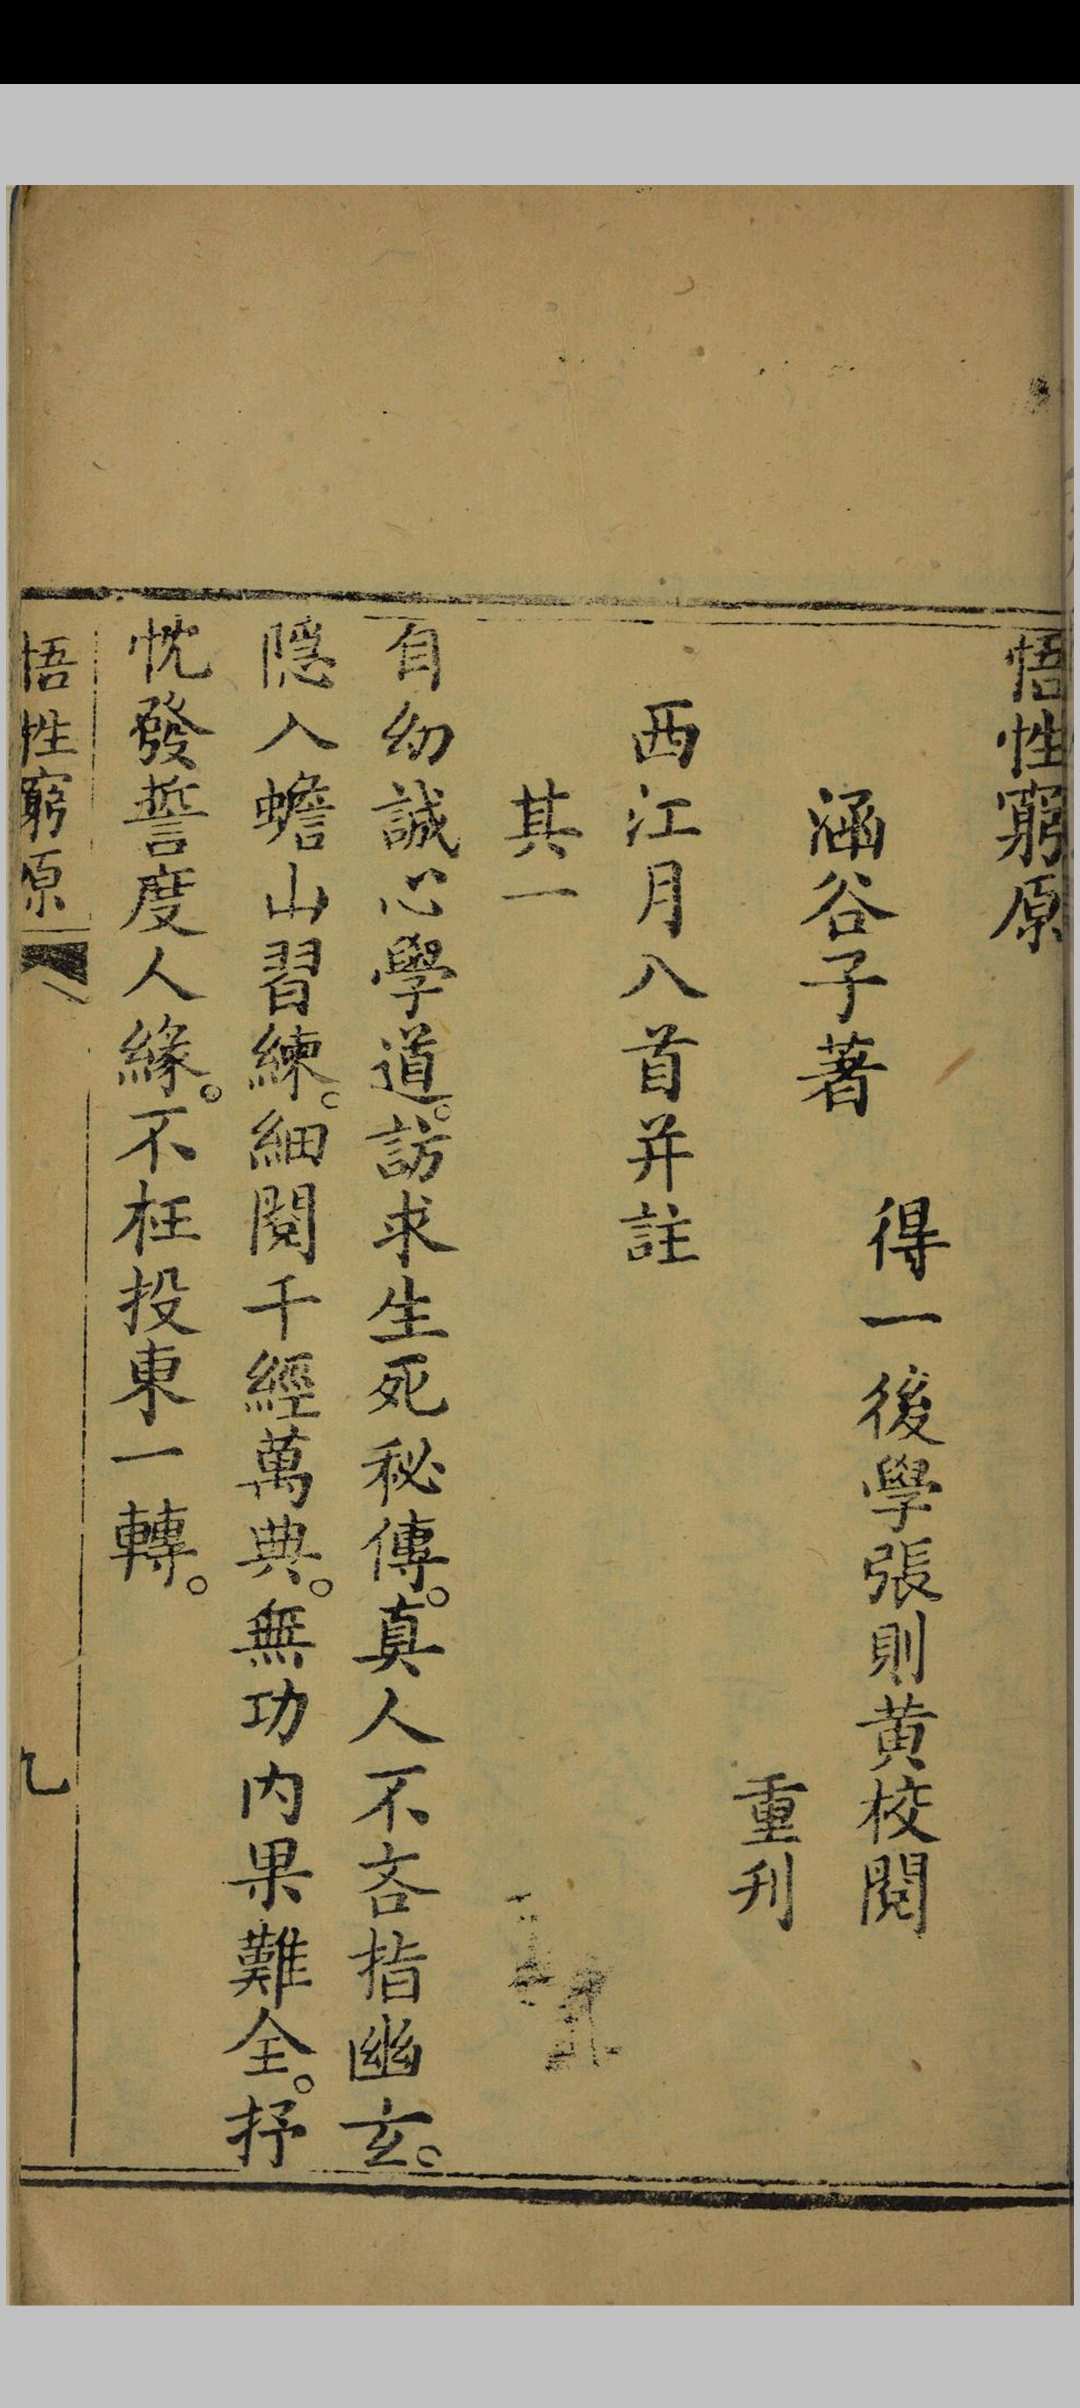 悟性窮原
得一後學張則黄校閲
涵谷子著
重刋
西江月八首并註
其一
自幼誠心學道。訪求生死秘傳。真人不吝指幽玄。
隱入蟾山習練。細閲千經萬典。無功内果難全。抒
忱發誓度人緣。不枉投東一轉。
悟性窮原